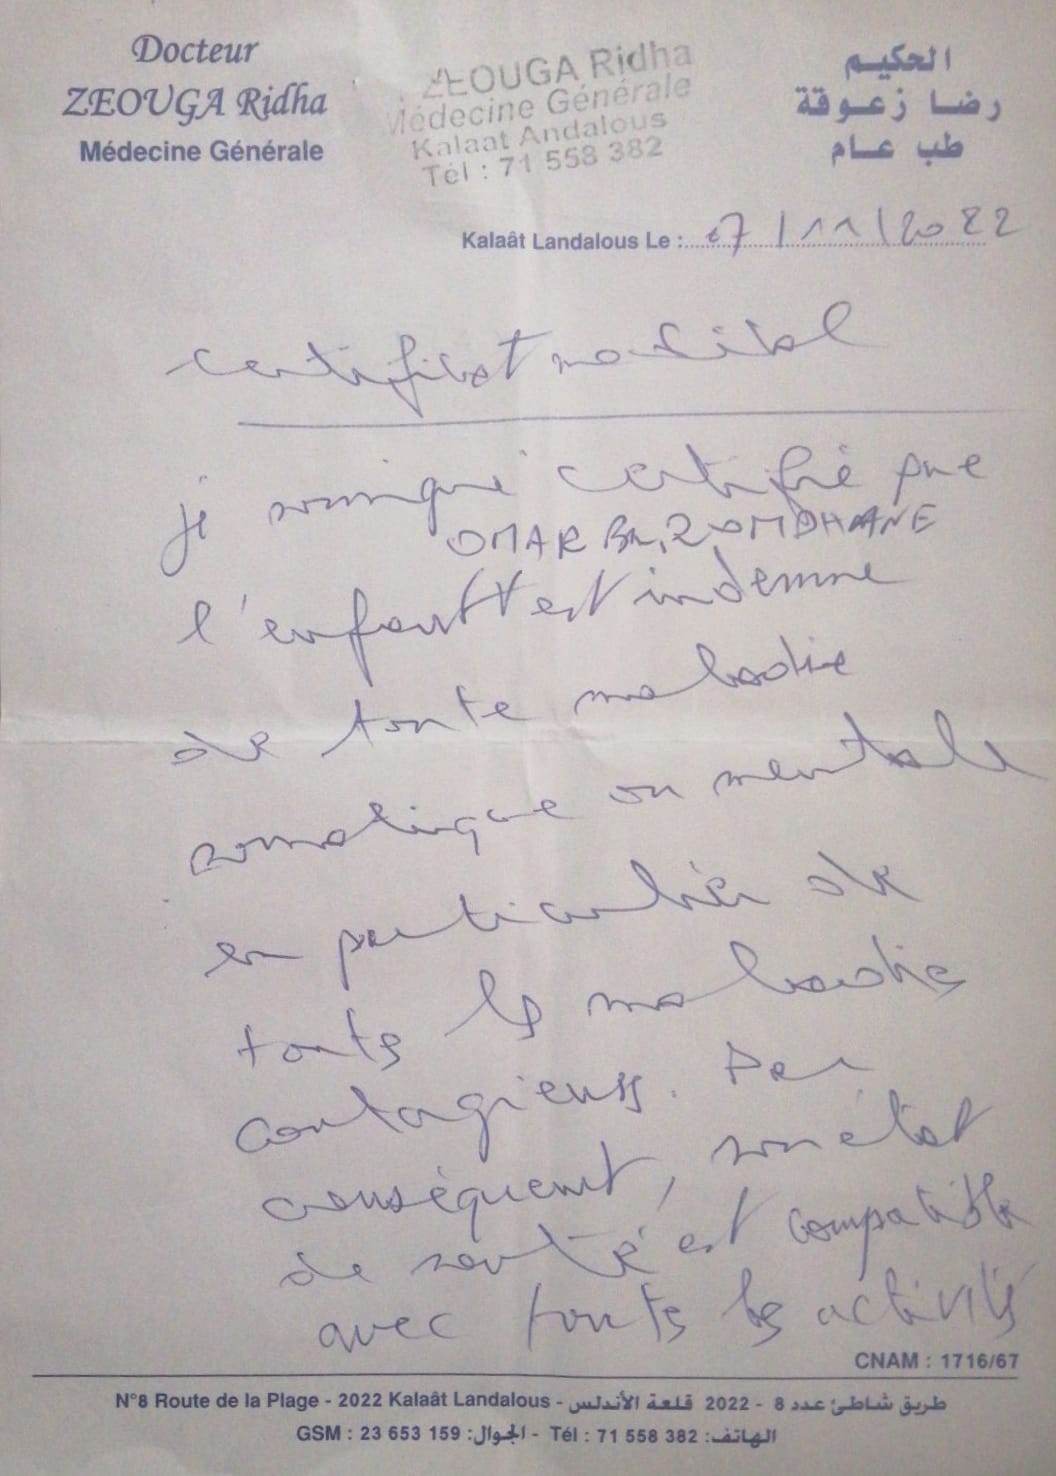 Docteur
ZEOUGA Ridha
Médecine Générale
ZEOUGA Ridha
Médecine Générale
Kalaat Andalous
Tél : 71 558 382
الحكيم
رضا زعوقة
طب عام
Kalaât Landalous Le : 07/11/2022
certificat médical
je soussigné certifié que
OMAR Ben ROMDHANE
l'enfant est indemne
de toute maladie
somatique ou mentale
en particulier de
touts les maladies
contagieuses. Par
conséquent, son état
de santé est compatible
avec touts les activités
CNAM : 1716/67
N°8 Route de la Plage - 2022 Kalaât Landalous - طريق شاطئ عدد 8 - 2022 قلعة الأندلس
GSM : 23 653 159 :الجوال - Tél : 71 558 382 :الهاتف